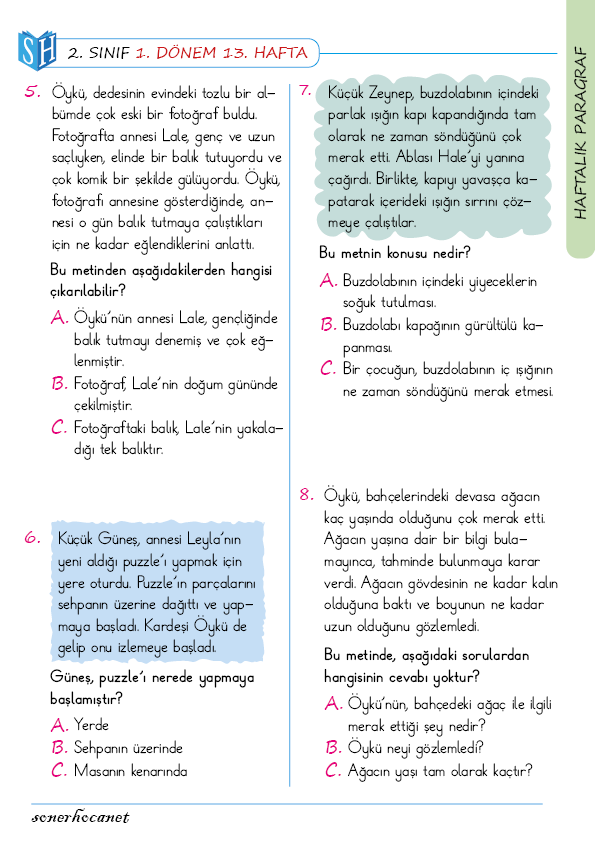 SH
2. SINIF 1. DÖNEM 13. HAFTA
HAFTALIK PARAGRAF
5. Öykü, dedesinin evindeki tozlu bir al-
bümde çok eski bir fotoğraf buldu.
Fotoğrafta annesi Lale, genç ve uzun
saçlıyken, elinde bir balık tutuyordu ve
çok komik bir şekilde gülüyordu. Öykü,
fotoğrafı annesine gösterdiğinde, an-
nesi o gün balık tutmaya çalıştıkları
için ne kadar eğlendiklerini anlattı.
Bu metinden aşağıdakilerden hangisi
çıkarılabilir?
A. Öykü'nün annesi Lale, gençliğinde
balık tutmayı denemiş ve çok eğ-
lenmiştir.
B. Fotoğraf, Lale'nin doğum gününde
çekilmiştir.
C. Fotoğraftaki balık, Lale'nin yakala-
dığı tek balıktır.
6. Küçük Güneş, annesi Leyla'nın
yeni aldığı puzzle'ı yapmak için
yere oturdu. Puzzle'ın parçalarını
sehpanın üzerine dağıttı ve yap-
maya başladı. Kardeşi Öykü de
gelip onu izlemeye başladı.
Güneş, puzzle'ı nerede yapmaya
başlamıştır?
A. Yerde
B. Sehpanın üzerinde
C. Masanın kenarında
7. Küçük Zeynep, buzdolabının içindeki
parlak ışığın kapı kapandığında tam
olarak ne zaman söndüğünü çok
merak etti. Ablası Hale'yi yanına
çağırdı. Birlikte, kapıyı yavaşça ka-
patarak içerideki ışığın sırrını çöz-
meye çalıştılar.
Bu metnin konusu nedir?
A. Buzdolabının içindeki yiyeceklerin
soğuk tutulması.
B. Buzdolabı kapağının gürültülü ka-
panması.
C. Bir çocuğun, buzdolabının iç ışığının
ne zaman söndüğünü merak etmesi.
8. Öykü, bahçelerindeki devasa ağacın
kaç yaşında olduğunu çok merak etti.
Ağacın yaşına dair bir bilgi bula-
mayınca, tahminde bulunmaya karar
verdi. Ağacın gövdesinin ne kadar kalın
olduğuna baktı ve boyunun ne kadar
uzun olduğunu gözlemledi.
Bu metinde, aşağıdaki sorulardan
hangisinin cevabı yoktur?
A. Öykü'nün, bahçedeki ağaç ile ilgili
merak ettiği şey nedir?
B. Öykü neyi gözlemledi?
C. Ağacın yaşı tam olarak kaçtır?
sonerhocanet